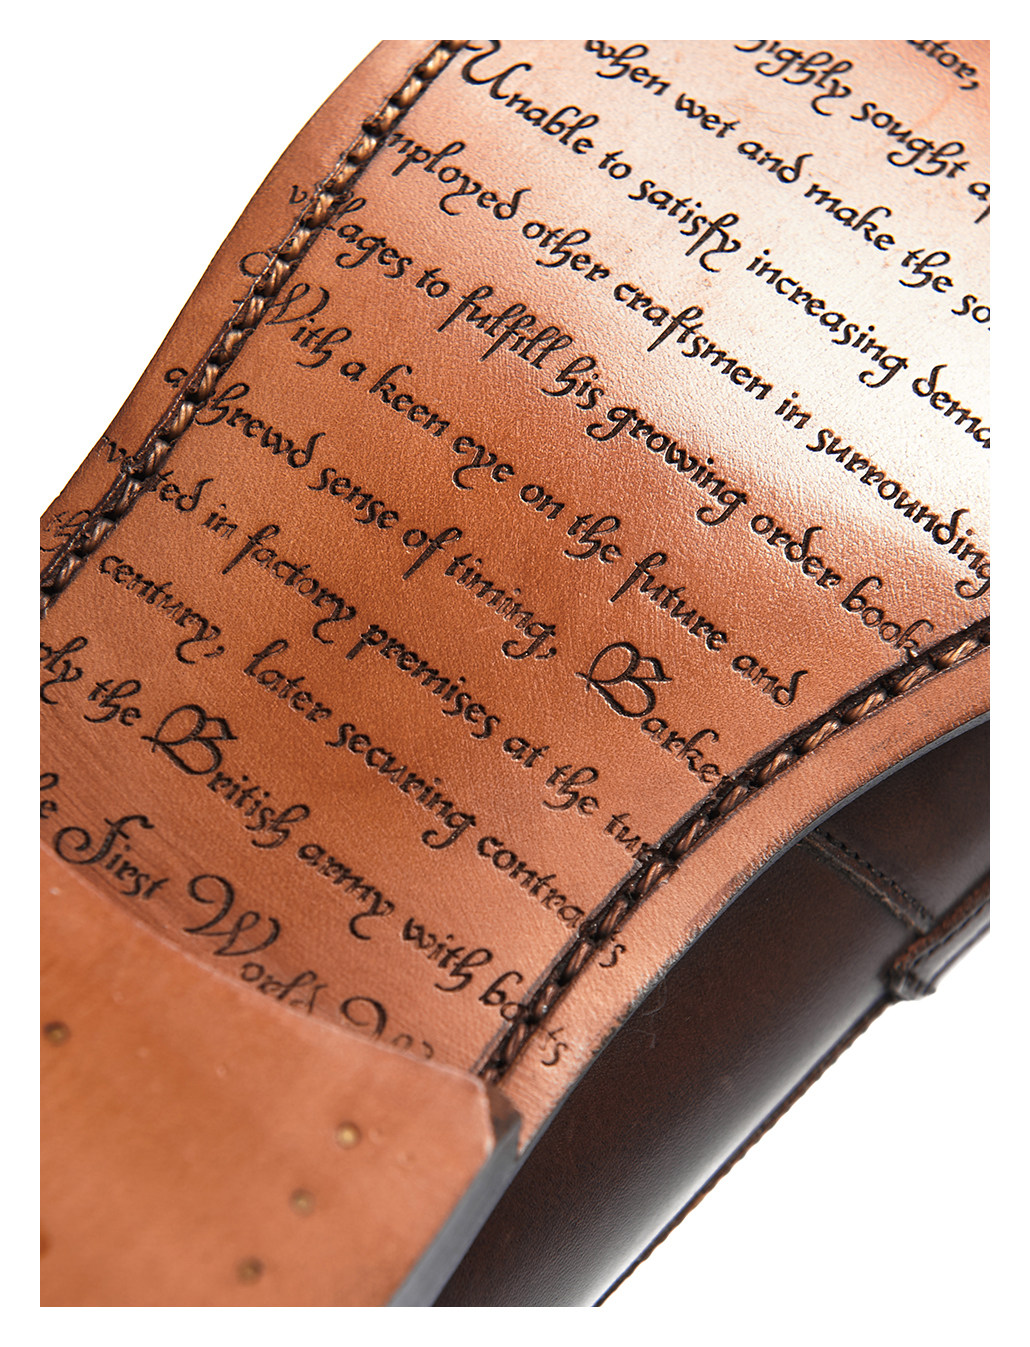 ator,
highly sought a
when wet and make the so
Unable to satisfy increasing dema
mployed other craftsmen in surrounding
villages to fulfill his growing order book
With a keen eye on the future and
a shrewd sense of timing, Barker
vested in factory premises at the tur
th century, later securing contracts
ply the British army with boots
e First World W